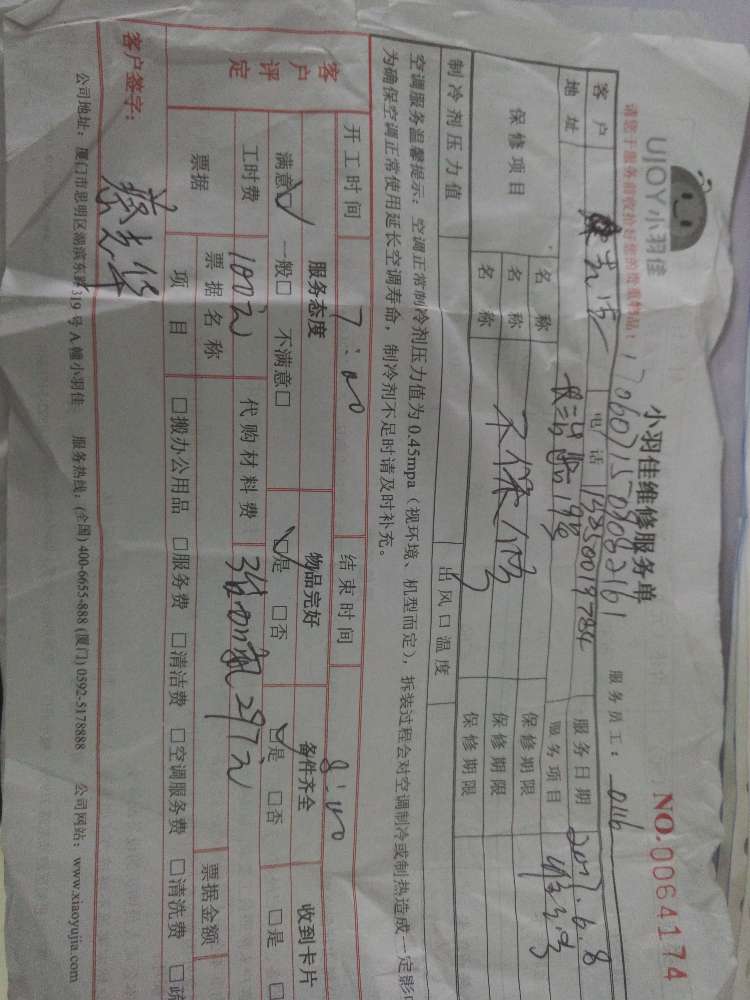 UJOY小羽佳
小羽佳维修服务单
NO.0064174
请您于服务前收拾好您的贵重物品!
服务员工: 0116
客户 电话 服务日期 2017.6.8
地址 服务项目
保修项目 名称 不保 保修期限
名称 保修期限
名称 保修期限
制冷剂压力值 出风口温度
空调服务温馨提示:空调正常制冷剂压力值为0.45mpa(视环境、机型而定),拆装过程会对空调制冷或制热造成一定影
为确保空调正常使用延长空调寿命,制冷剂不足时请及时补充。
开工时间 7:00 结束时间 8:00
客户评定 服务态度 物品完好 备件齐全 收到卡片
满意☑ 一般□ 不满意□ ☑是 □否 ☑是 □否 □是 □
工时费 100元 代购材料费 297元
票据 票据名称 票据金额
项目 □搬办公用品 □服务费 □清洁费 □空调服务费 □清洗费 □疏
客户签字: 蔡志华
公司地址:厦门市思明区湖滨东路319号A幢小羽佳 服务热线:(全国) 400-6655-888 (厦门) 0592-5178888 公司网站:www.xiaoyujia.com